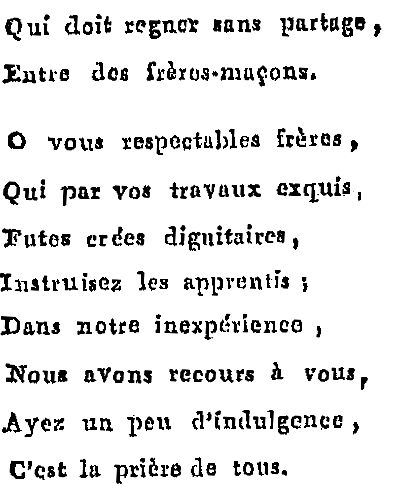 Qui doit regner sans partage,
Entre des frères-maçons.
O vous respectables frères,
Qui par vos travaux exquis,
Futes créés dignitaires,
Instruisez les apprentis ;
Dans notre inexpérience ,
Nous avons recours à vous,
Ayez un peu d'indulgence,
C'est la prière de tous.